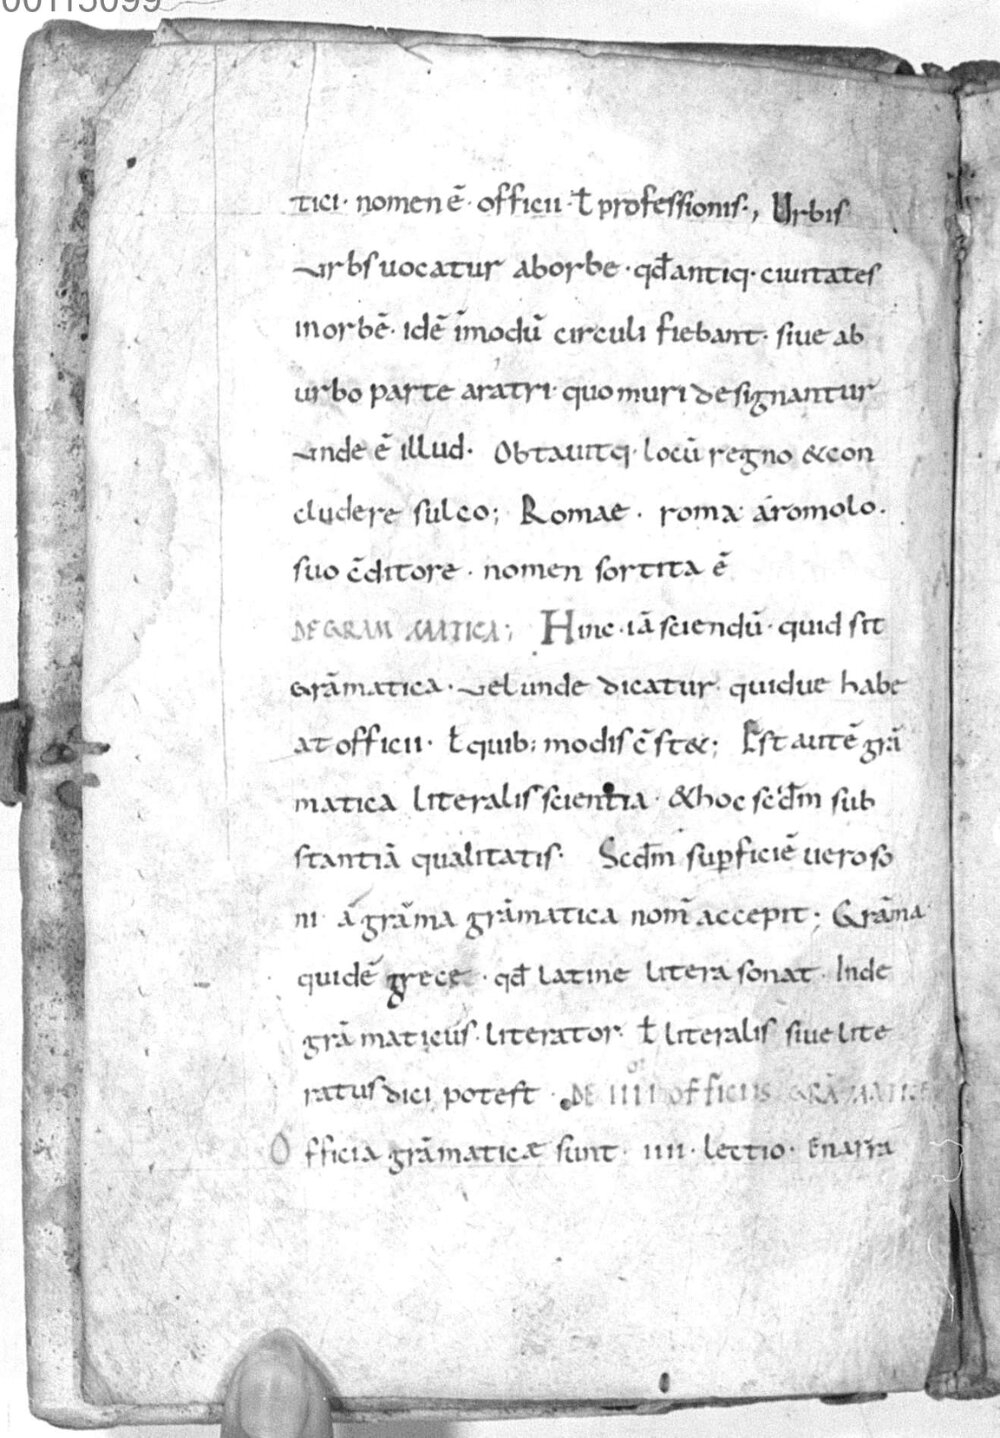 00115099
tici · nomen ē · officii · ł professionis ·, Urbis
Urbs uocatur aborbe · qđ antiq · ciuitates
inorbē · idē īmodū circuli fiebant · siue ab
urbo parte aratri · quo muri designantur
Unde ē illud · Obtauitq · locū regno & con
cludere sulco; Romae · roma áromolo ·
suo c̄ditore · nomen sortita ē
DE GRAMMATICA; Hinc · iā sciendū · quid sit
Grāmatica · uel unde dicatur · quidue habe
at officii · ł quib; modis c̄st&; Est autē grā
matica literalis scientia · & hoc scđm sub
stantiā qualitatis · Scđm sup̄ficiē uero so
ni á grāma grāmatica nom̄ accepit; Grāma
quidē grece · qđ latine litera sonat · Inde
grāmaticus · literator · ł literalis siue lite
ratus dici potest · DE IIII officiis GRĀMATICE
Officia grāmaticæ sunt · IIII · lectio · Enarra